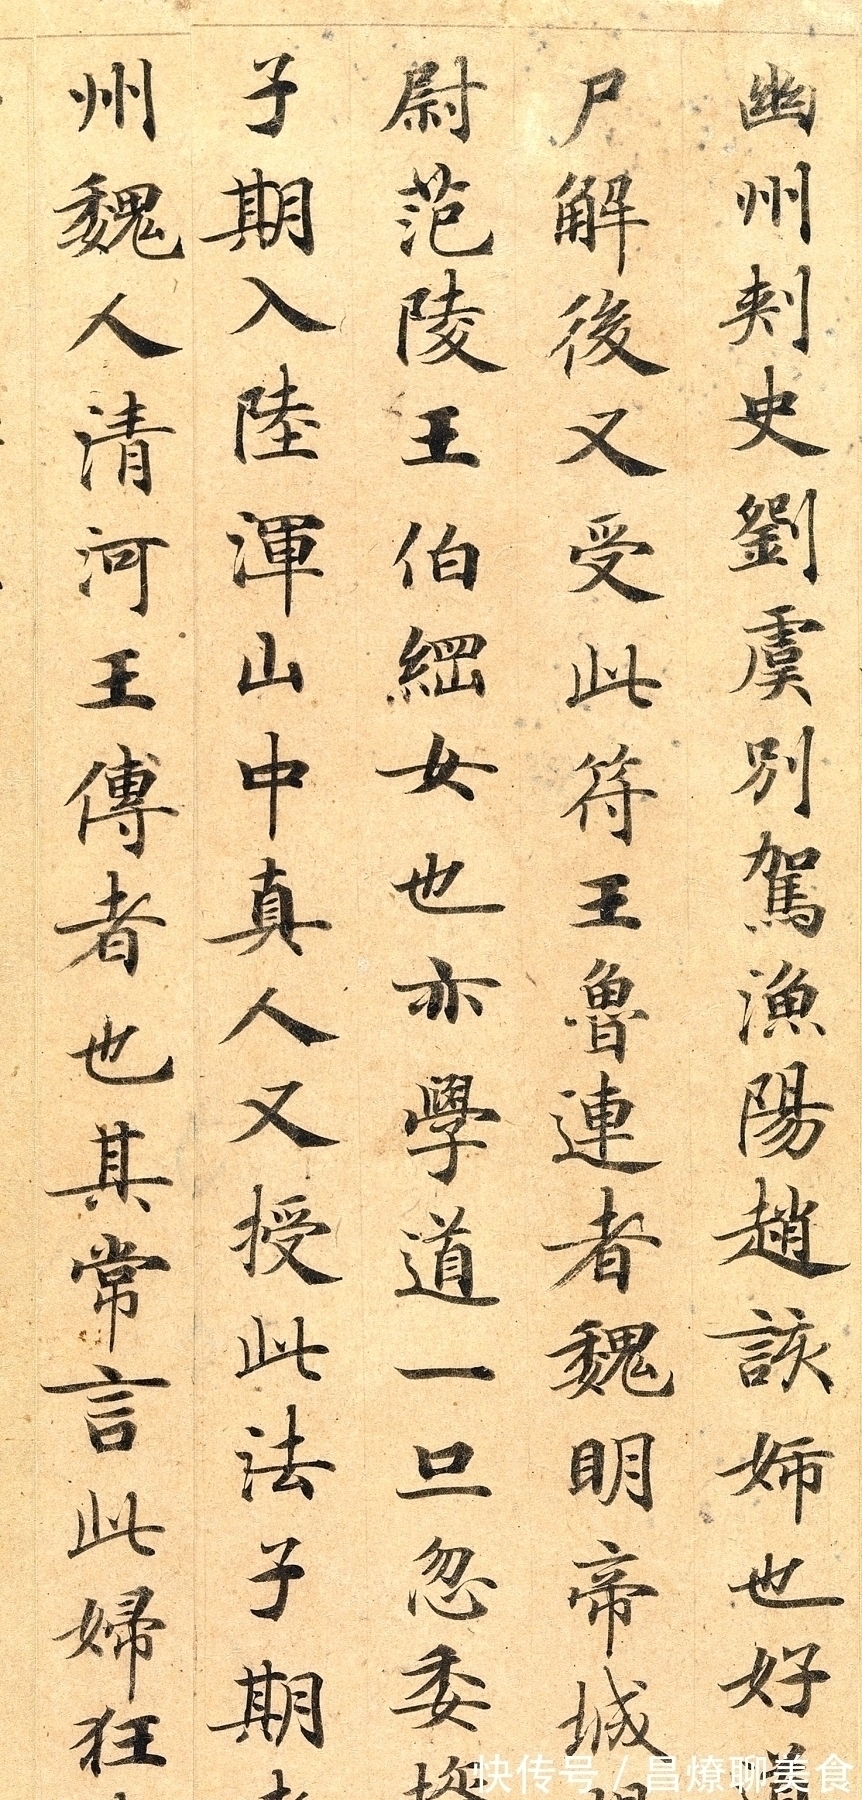 幽州刾史劉虞別駕漁陽趙該姉也好道
尸解後又受此符王魯連者魏明帝城
尉范陵王伯綱女也亦學道一旦忽委
子期入陸渾山中真人又授此法子期
州魏人清河王傅者也其常言此婦狂
快传号 / 昌燎聊美食